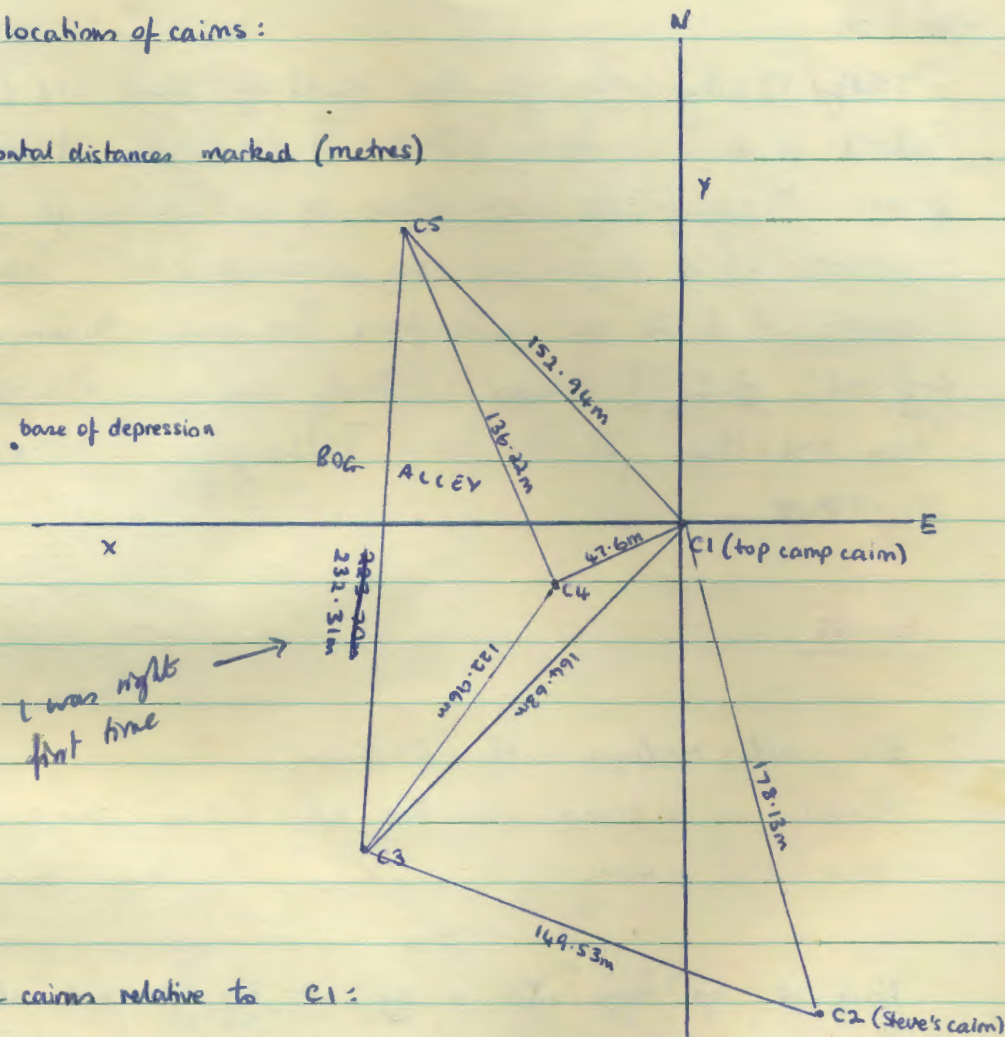 locations of cairns:
N
ontal distances marked (metres)
Y
C5
152.94m
136.22m
base of depression
BOG ALLEY
E
X
C1 (top camp cairn)
47.6m
C4
232.31m
122.96m
164.63m
I was right
first time
178.13m
C3
149.53m
cairns relative to C1:
C2 (Steve's cairn)